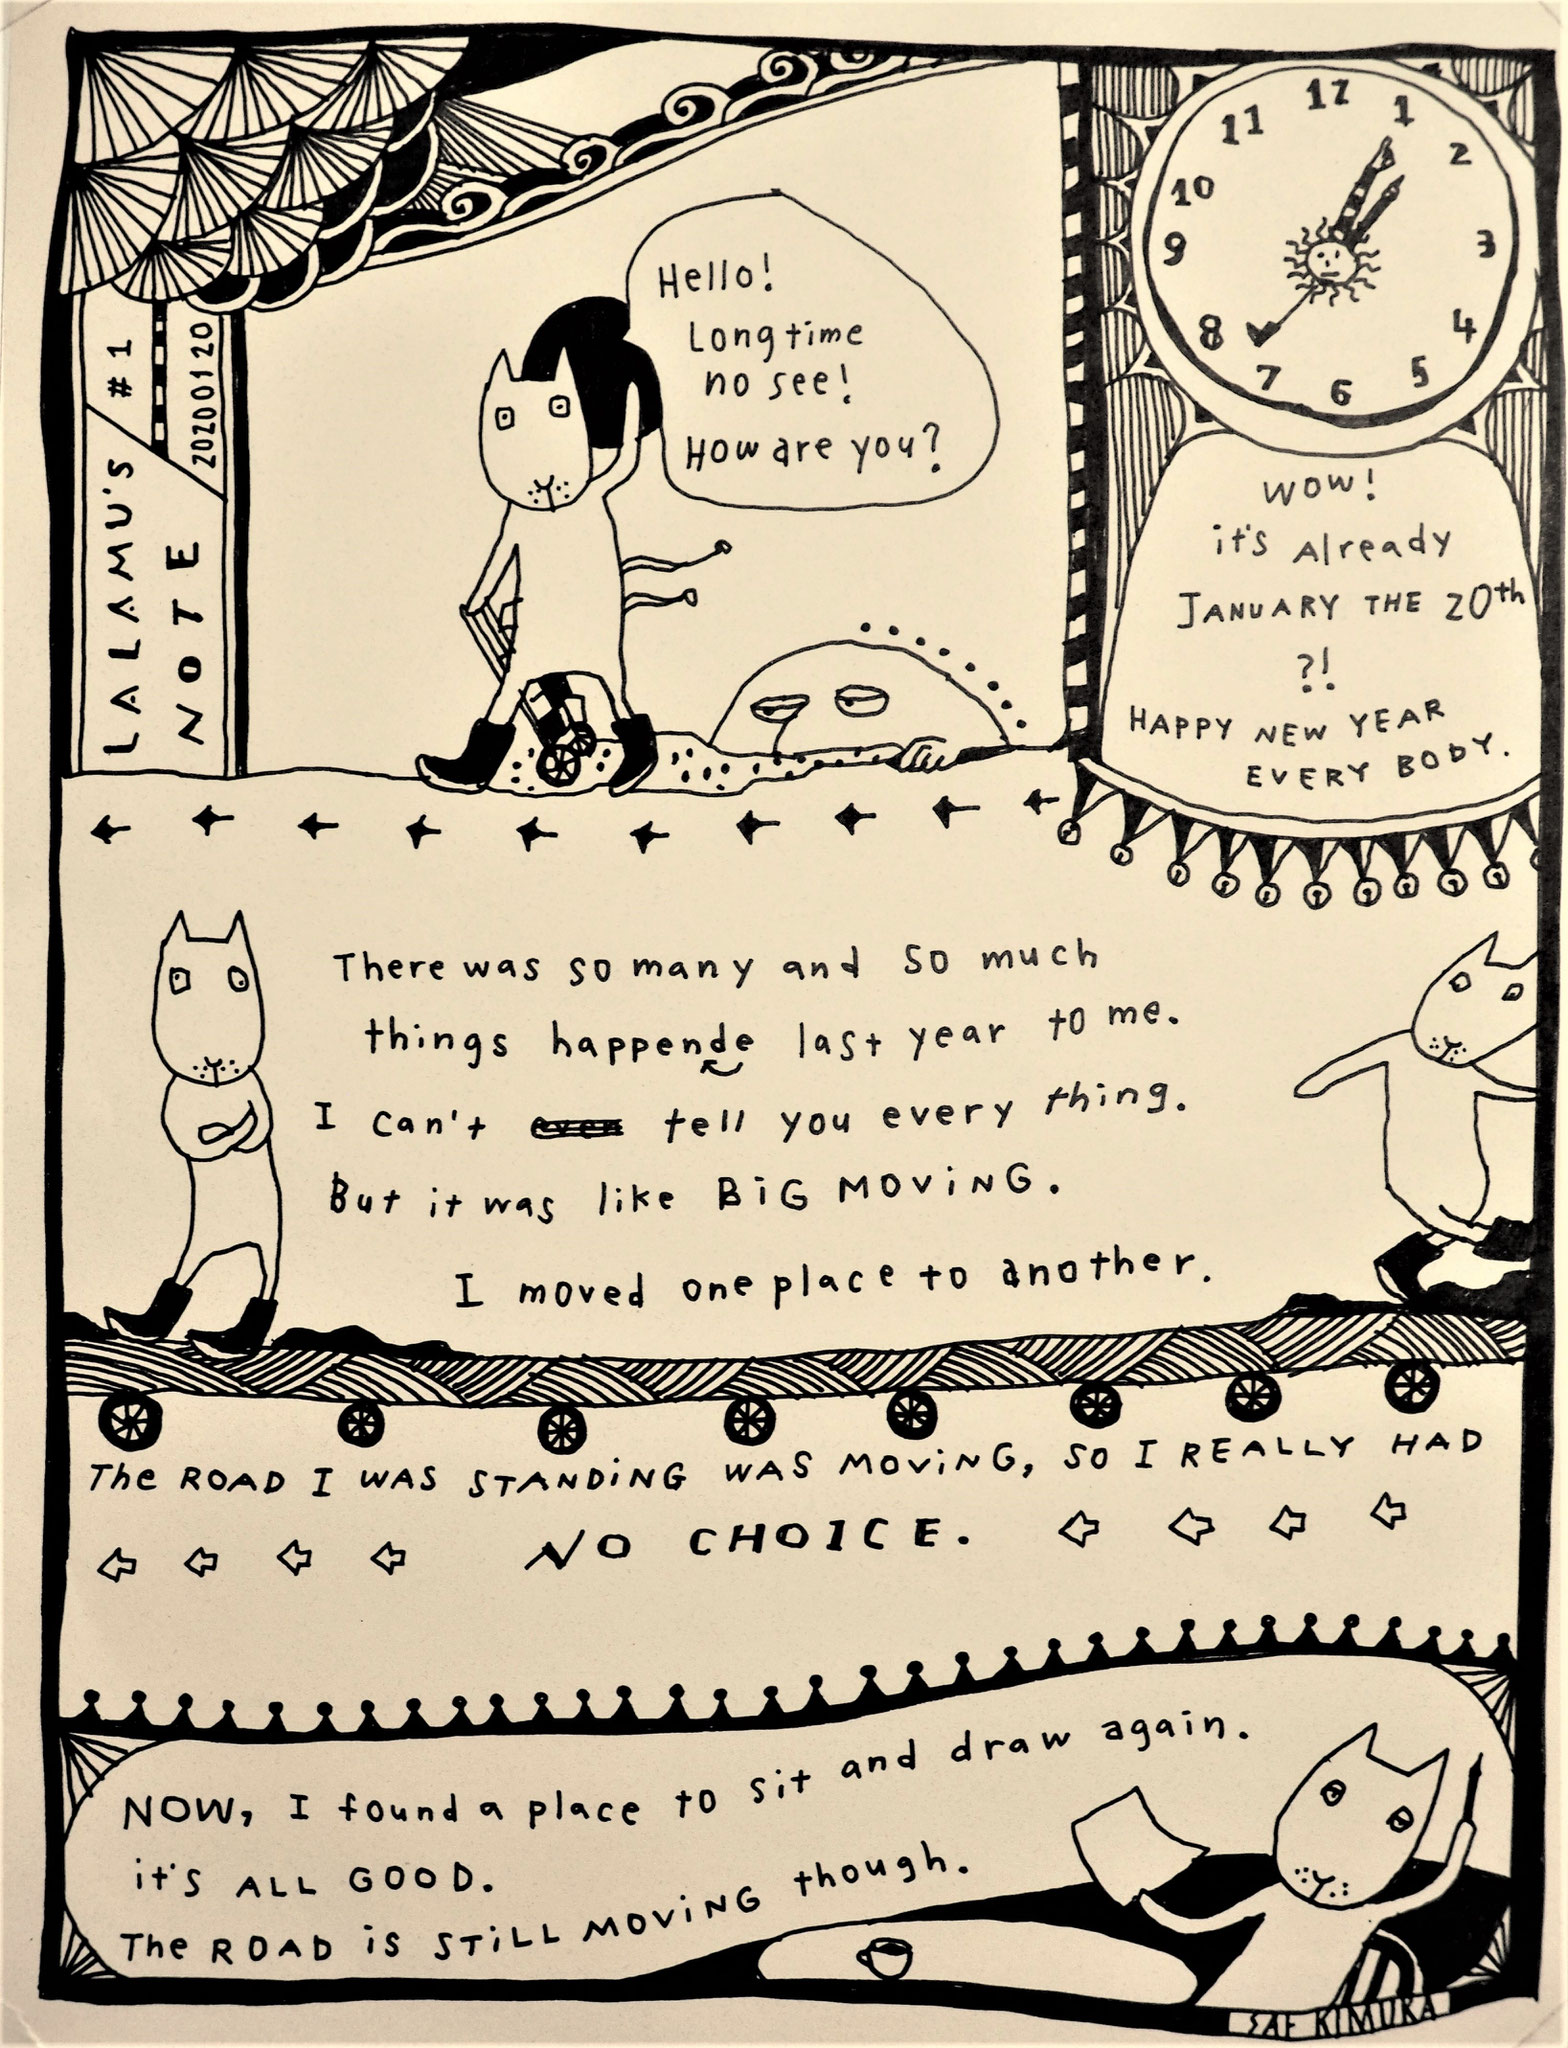 LALAMU'S #1
NOTE 20200120
Hello!
Long time
no see!
How are you?
12
11 1
10 2
9 3
8 4
7 5
6
WOW!
it's Already
JANUARY THE 20th
?!
HAPPY NEW YEAR
EVERY BODY.
There was so many and so much
things happende last year to me.
I can't even tell you every thing.
But it was like BiG MOViNG.
I moved one place to another.
The ROAD I WAS STANDiNG WAS MOViNG, SO I REALLY HAD
NO CHOICE.
NOW, I found a place to sit and draw again.
it's ALL GOOD.
The ROAD is STiLL MOViNG though.
SAE KIMURA